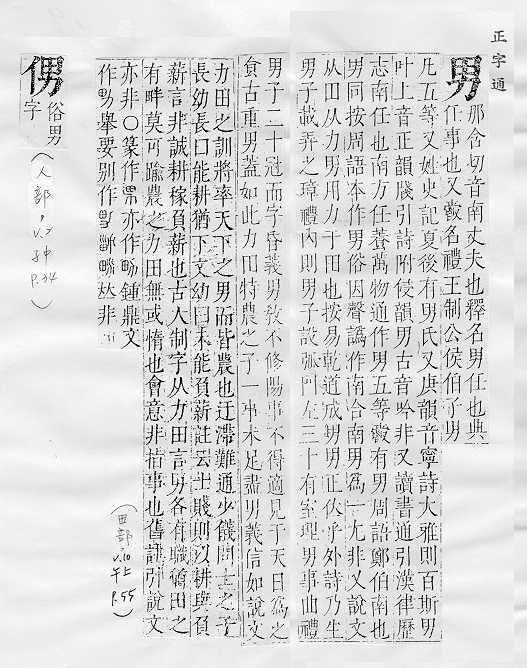 正字通
男 那含切音南丈夫也釋名男任也典
任事也又爵名禮王制公侯伯子男
凡五等又姓史記夏後有男氏又庚韻音寧詩大雅則百斯男
叶上音正韻牋引詩附侵韻男古音吟非又讀書通引漢律歷
志南任也南方任養萬物通作男五等爵有男周語鄭伯南也
男同按周語本作男俗因聲譌作南合南男爲一尤非又說文
从田从力男用力于田也按易乾道成男男正位乎外詩乃生
男子載弄之璋禮內則男子設弧門左三十有室理男事曲禮
男子二十冠而字昏義男敎不修陽事不得適見于天日爲之
食古重男蓋如此力田特農之子一事未足盡男義信如說文
力田之訓將率天下之男而皆農也迂滯難通少儀問士之子
長幼長曰能耕猶下文幼曰未能負薪註云士賤則以耕與負
薪言非誠耕稼負薪也古人制字从力田言男各有職猶田之
有畔莫可踰農之力田無或惰也會意非指事也舊註引說文
亦非○篆作 亦作 鍾鼎文
作 舉要別作 非
(田部 V.10 午上 P.55)
㑲 俗男
字
(人部, V.2 子中 P.34)